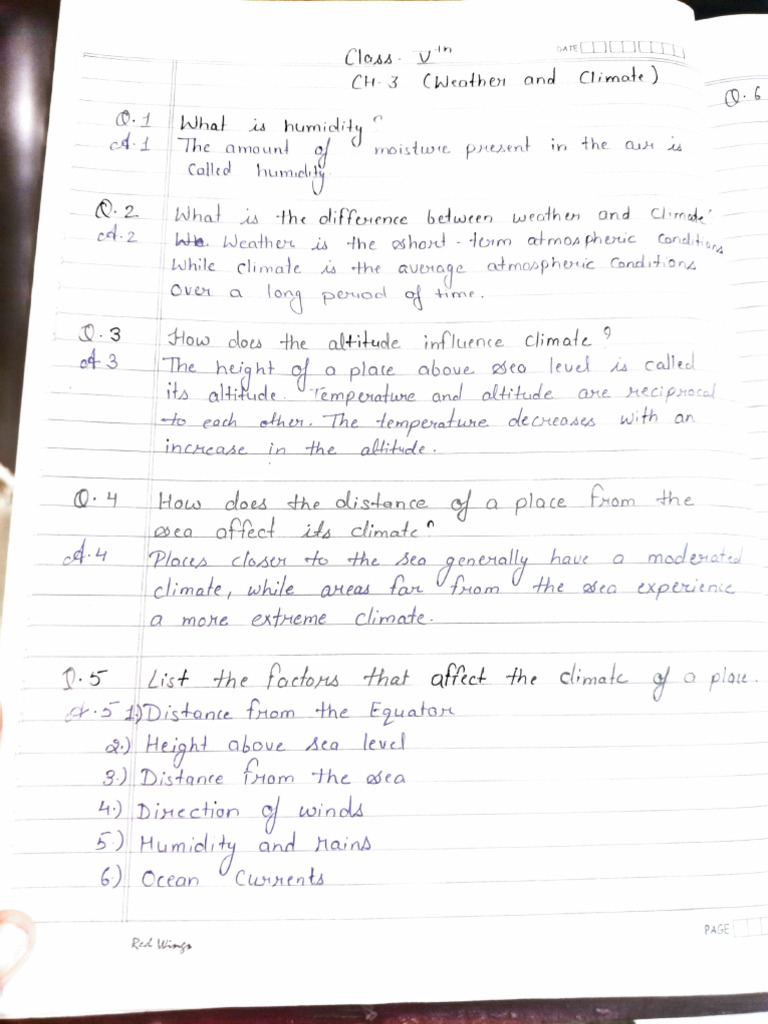 Class. Vth
DATE
CH-3 (Weather and Climate)
Q.6
Q.1 What is humidity?
A.1 The amount of moisture present in the air is
called humidity
Q.2 What is the difference between weather and Climate?
A.2 Weather is the short-term atmospheric conditions
While climate is the average atmospheric conditions
over a long period of time.
Q.3 How does the altitude influence climate?
A.3 The height of a place above sea level is called
its altitude. Temperature and altitude are reciprocal
to each other. The temperature decreases with an
increase in the altitude.
Q.4 How does the distance of a place from the
sea affect its climate?
A.4 Places closer to the sea generally have a moderated
climate, while areas far from the sea experience
a more extreme climate.
Q.5 List the factors that affect the climate of a place.
A.5 1.) Distance from the Equator
2.) Height above sea level
3.) Distance from the sea
4.) Direction of winds
5.) Humidity and rains
6.) Ocean Currents
PAGE
Red Wings